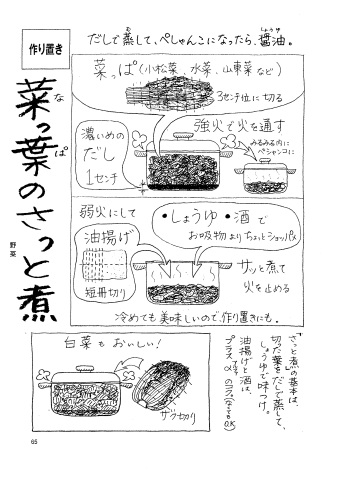 作り置き
菜っ葉のさっと煮
な
ぱ
野菜
だしで蒸して、ぺしゃんこになったら、醤油。
む
しょうゆ
菜っぱ(小松菜、水菜、山東菜 など)
3センチ位に切る
濃いめの
だし
1センチ
強火で火を通す
みるみる内に
ペシャンコに
弱火にして
油揚げ
短冊切り
・しょうゆ・酒で
お吸物よりちょっとショッパメ
サッと煮て
火を止める
冷めても美味しいので、作り置きにも。
白菜もおいしい!
ザク切り
“さっと煮”の基本は、
切った葉をだしで蒸して、
しょうゆで味つけ。
油揚げと酒は、
プラスαのコク(なくてもOK)
65